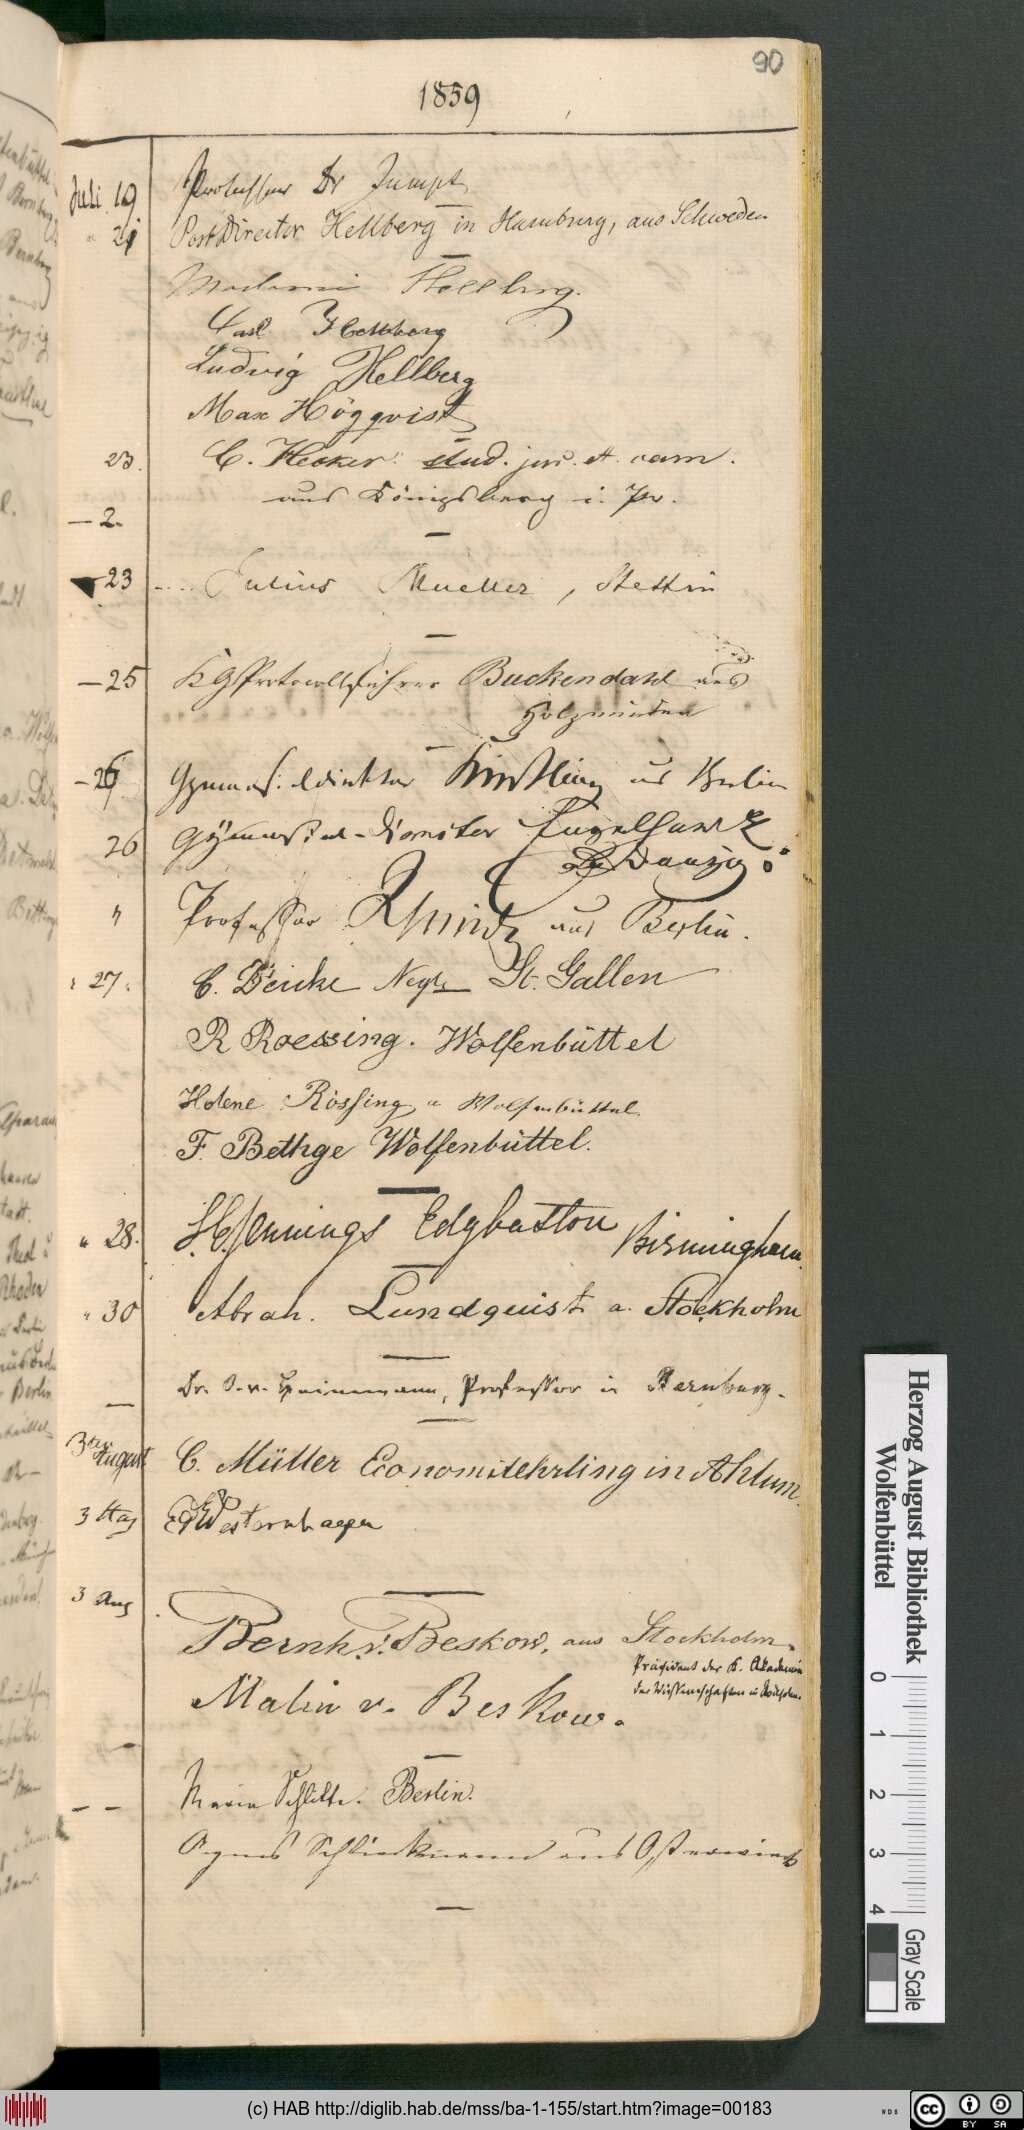 90
1859
Juli 19 Professor Dr Zumpt
" 21 PostDirector Hellberg in Hamburg, aus Schweden
Madame Hellberg.
Carl Hellberg
Ludvig Hellberg
Max Högqvist
23. C. Hecker stud. jur. et cam.
aus Königsberg i. Pr.
— 2.
23 Julius Mueller, Stettin
— 25 KG Protocollführer Buckendahl aus
Holzminden
— 26 Gymnas. direktor aus Berlin
26 Gymnasial-Director Engelhardt
Danzig
" Professor aus Berlin.
" 27 " C. Deicke St. Gallen
R Roessing. Wolfenbüttel
Helene Rössing a Wolfenbüttel
F. Bethge Wolfenbüttel.
" 28. Jennings Edgbaston Birmingham.
" 30 Abrah. Lundquist a. Stockholm
— Dr. O. v. Heinemann, Professor in Bernburg.
3ten August C. Müller Economilehrling in Ahlum.
3 Westernhagen
3 Aug Bernh. v. Beskow, aus Stockholm.
Präsident der K. Akademie
der Wissenschaften
Malin v. Beskow.
Maria Schlitte. Berlin.
Agnes aus Osterwieck
Herzog August Bibliothek
Wolfenbüttel
0 1 2 3 4
Gray Scale
(c) HAB http://diglib.hab.de/mss/ba-1-155/start.htm?image=00183
WDB
CC BY SA